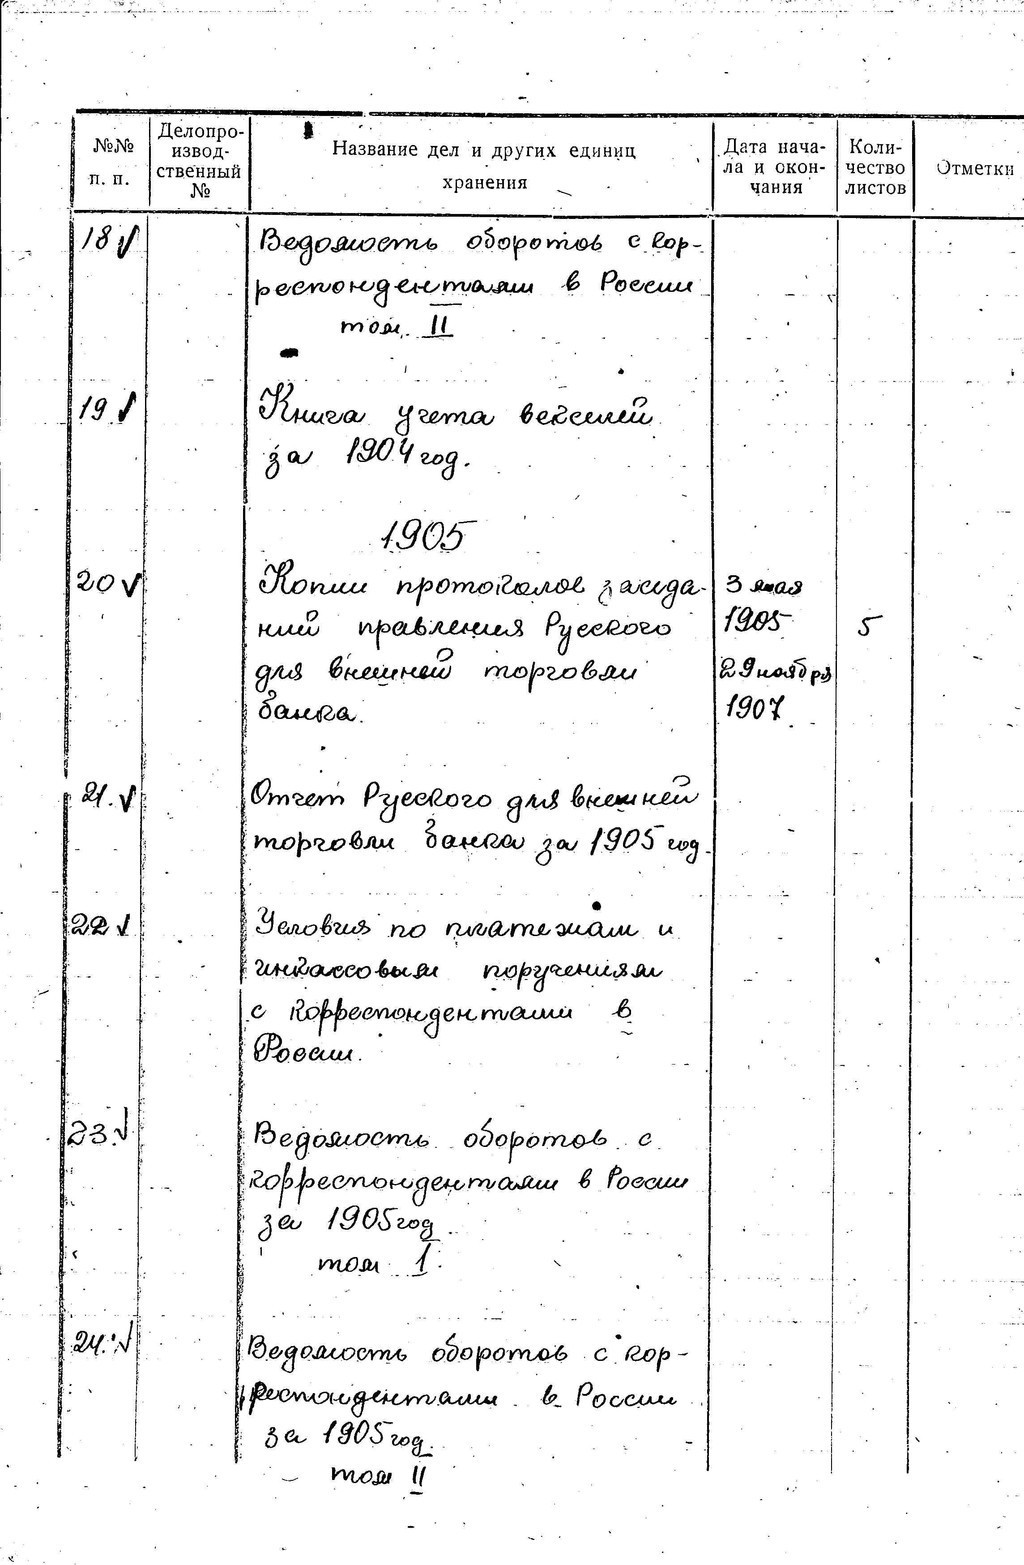 №№ п. п.
Делопро-
извод-
ственный
№
Название дел и других единиц
хранения
Дата нача-
ла и окон-
чания
Коли-
чество
листов
Отметки
18 √
Ведомость оборотов с кор-
респондентами в России
том II
19 √
Книга учета векселей
за 1904 год.
1905
20 √
Копии протоколов заседа-
ний правления Русского
для внешней торговли
банка.
3 мая
1905
29 ноября
1907
5
21. √
Отчет Русского для внешней
торговли банка за 1905 год.
22 √
Условия по платежам и
инкассовым поручениям
с корреспондентами в
России.
23. √
Ведомость оборотов с
корреспондентами в России
за 1905 год
том I.
24. √
Ведомость оборотов с кор-
респондентами в России
за 1905 год.
том II